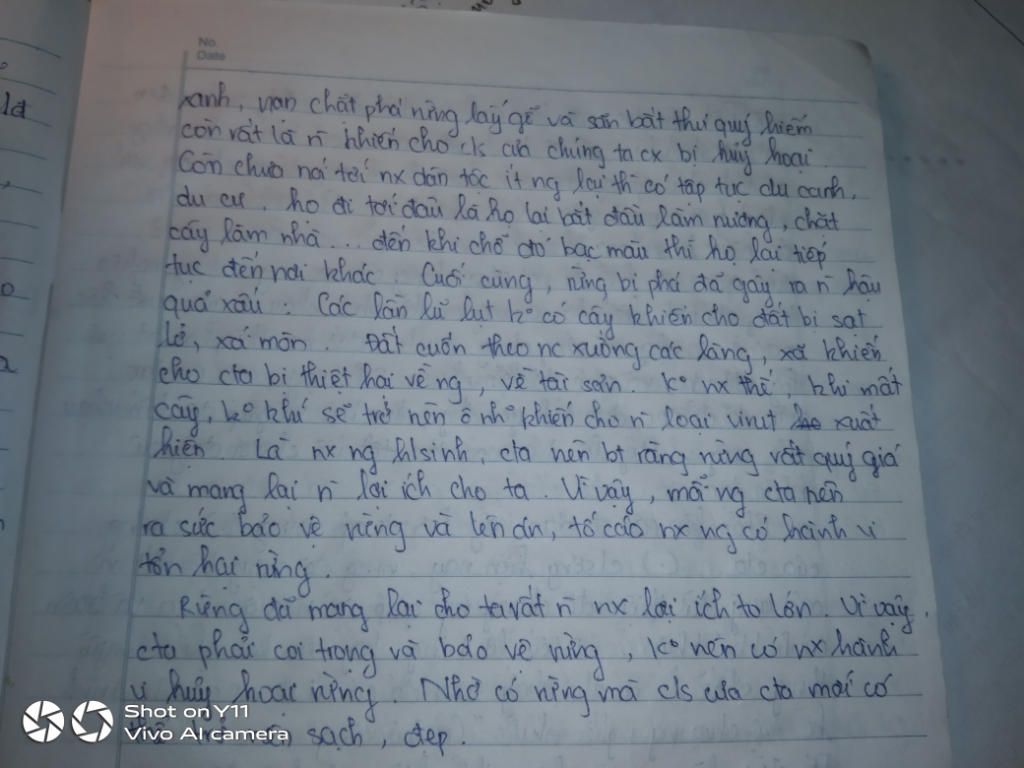 No.
Date
xanh, nạn chặt phá rừng lấy gỗ và săn bắt thú quý hiếm
còn rất là n khiến cho c/s của chúng ta cx bị hủy hoại.
Còn chưa nói tới nx dân tộc ít ng lại thì có tập tục du canh,
du cư. họ đi tới đâu là họ lại bắt đầu làm nương, chặt
cây làm nhà... đến khi chỗ đó bạc màu thì họ lại tiếp
tục đến nơi khác. Cuối cùng, rừng bị phá đã gây ra n hậu
quả xấu: Các lần lũ lụt k° có cây khiến cho đất bị sạt
lở, xói mòn. Đất cuốn theo nc xuống các làng, xã khiến
cho cta bị thiệt hại về ng, về tài sản. k° nx thế, khi mất
cây, k° khí sẽ trở nên ô nh° khiến cho n loại virut xuất
hiện. Là nx ng h/sinh, cta nên bt rằng rừng rất quý giá
và mang lại n lợi ích cho ta. Vì vậy, mỗi ng cta nên
ra sức bảo vệ rừng và lên án, tố cáo nx ng có hành vi
tổn hại rừng.
Rừng đã mang lại cho ta rất n nx lợi ích to lớn. Vì vậy,
cta phải coi trọng và bảo vệ rừng, k° nên có nx hành
vi hủy hoại rừng. Nhờ có rừng mà c/s của cta mới có
sạch, đẹp.
Shot on Y11
Vivo AI camera